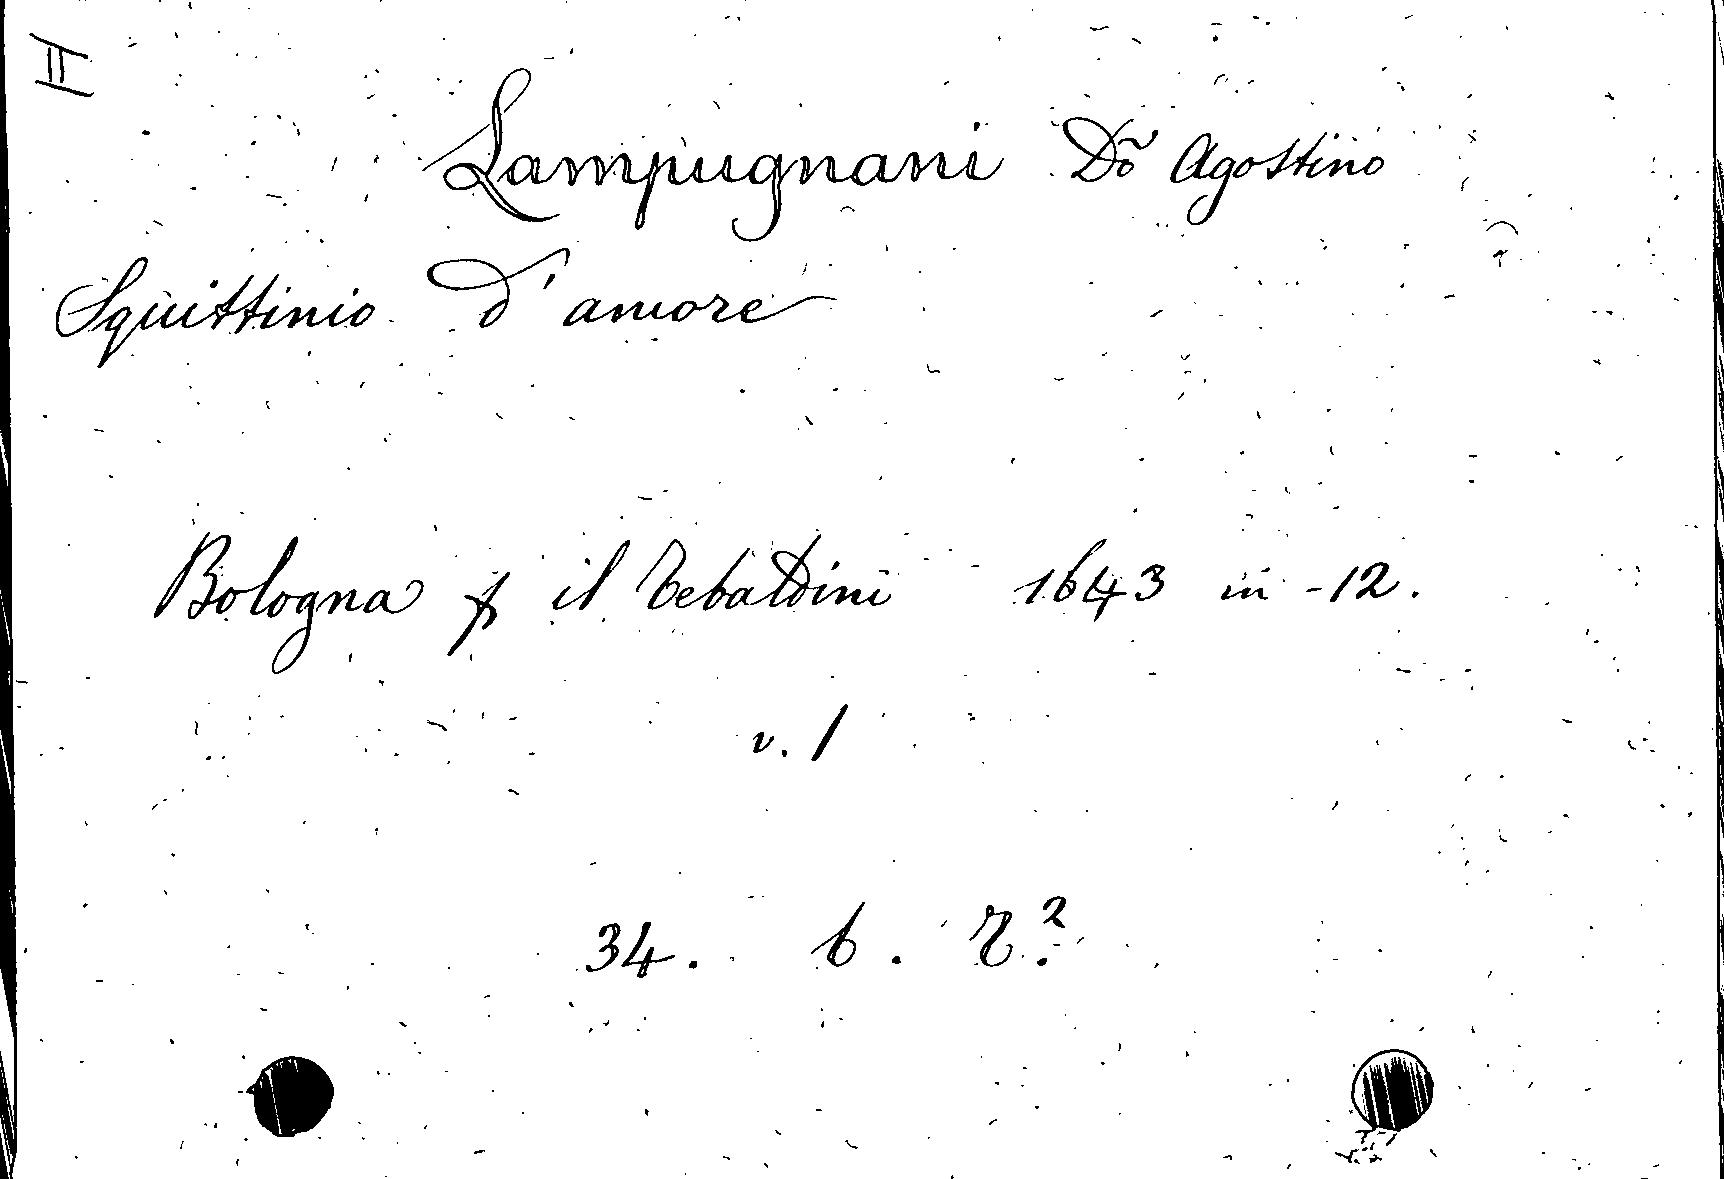 II
Lampugnani Dõ Agostino
Squittinio d' amore
Bologna p il Tebaldini 1643 in -12.
v. 1
34. b. 7.²